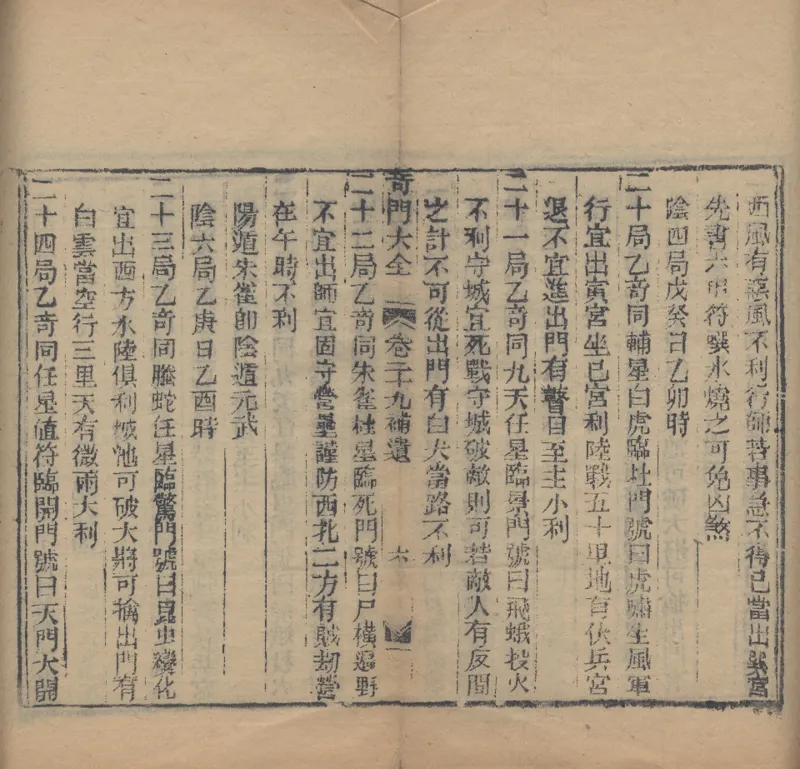 西風有寒風不利行師若事急不得已當出巽宮
先書六甲符噀水燒之可免凶煞
陰四局戊癸日乙卯時
二十局乙奇同輔星白虎臨杜門號曰虎嘯生風軍
行宜出寅宮坐巳宮利陸戰五十里地有伏兵宮
退不宜進出門有瞽目至主小利
二十一局乙奇同九天任星臨景門號曰飛蛾投火
不利守城宜死戰守城破敵則可若敵人有反間
之計不可從出門有白犬當路不利
奇門大全 卷二十九補遺 六
二十二局乙奇同朱雀柱星臨死門號曰尸橫遍野
不宜出師宜固守營壘謹防西北二方有賊劫營
在午時不利
陽遁朱雀即陰遁元武
陰六局乙庚日乙酉時
二十三局乙奇同騰蛇任星臨驚門號曰昆虫變化
宜出西方水陸俱利城池可破大將可擒出門有
白雲當空行三里天有微雨大利
二十四局乙奇同任星值符臨開門號曰天門大開